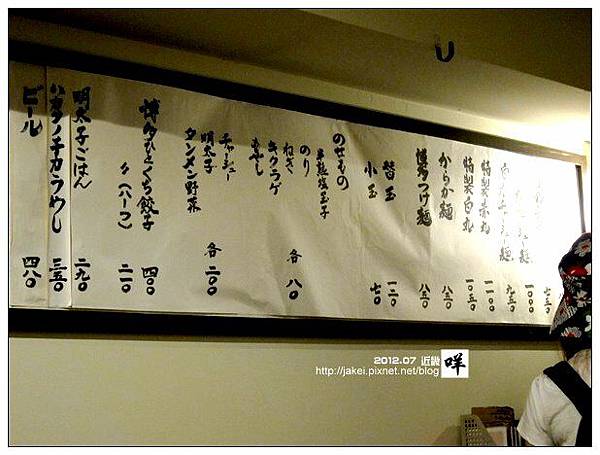 七五〇
一〇〇〇
九五〇
特製赤丸 一一〇〇
特製白丸 一〇五〇
からか麺 八五〇
博多つけ麺 八五〇
替玉 一二〇
小玉 七〇
のせもの
半熟塩玉子
のり
ねぎ
キクラゲ
もやし
各 八〇
チャーシュー
明太子
タンメン野菜
各 二〇〇
博多ひとくち餃子 四〇〇
〃 (ハーフ) 二一〇
明太子ごはん 二九〇
ハカタノチカラめし 三五〇
ビール 四八〇
2012.07 近畿 咩
http://jakei.pixnet.net/blog